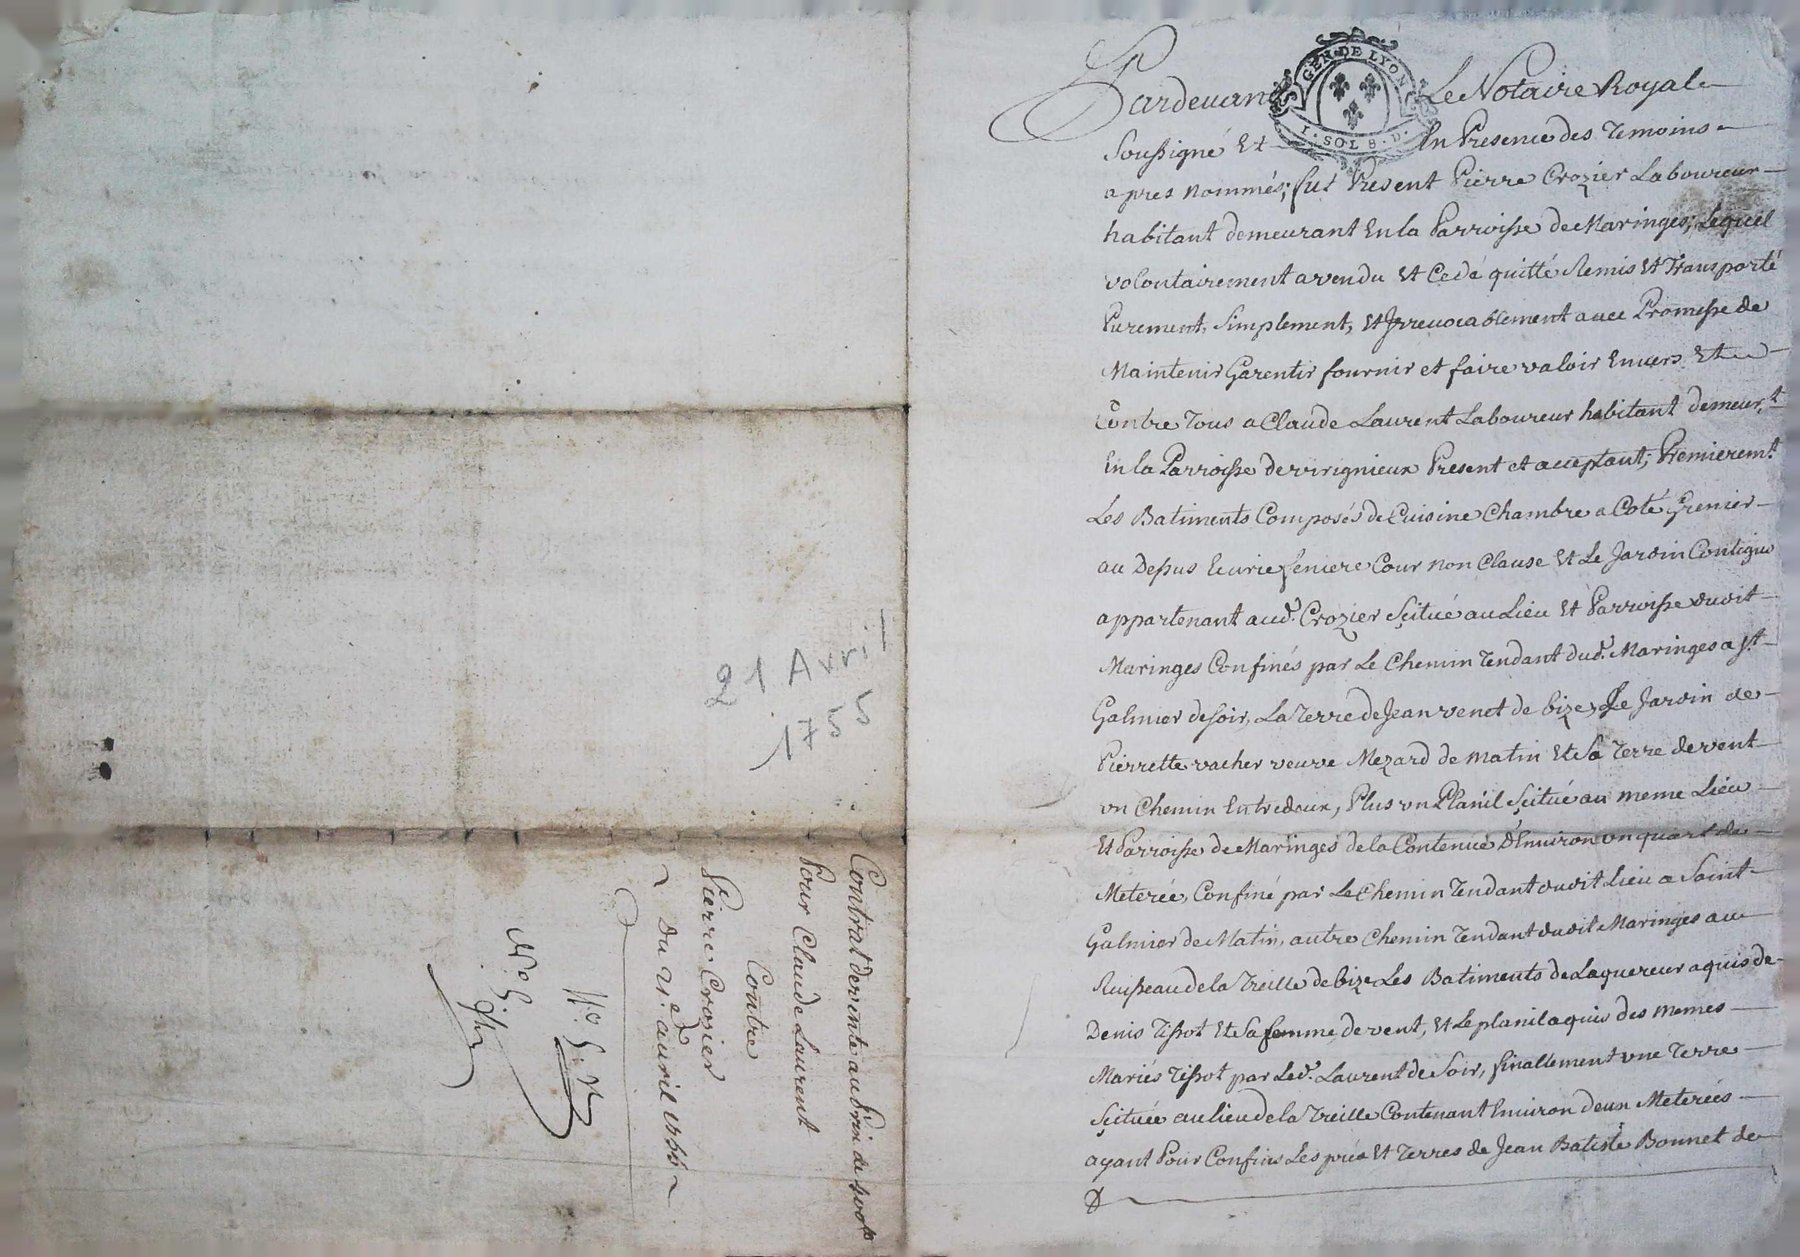 GEN. DE LYON
1. SOL 8. D.
Pardevant Le Notaire Royal
Soussigné Et En Presence des Temoins
apres nommés; fut Present Pierre Crozier Laboureur
habitant demeurant En la Parroisse de Maringes; Lequel
volontairement a vendu Et Cedé quitté Remis Et Transporté
Purement, Simplement, Et Irrevocablement avec Promesse de
Maintenir Garentir fournir et faire valoir Envers Et
Contre Tous a Claude Laurent Laboureur habitant demeur.t
En la Parroisse de virignieux Present et acceptant; Premierem.t
Les Batiments Composés de Cuisine Chambre a Coté Grenier
au Dessus Ecurie feniere Cour non Clause Et Le Jardin Contigu
appartenant aud. Crozier Scitué au Lieu Et Parroisse dudit
Maringes Confinés par Le Chemin Tendant dud. Maringes a St
Galmier de soir, La Terre de Jean venet de bize, Le Jardin de
Pierrette vacher veuve Mezard de matin Et Sa Terre de vent
un Chemin Entredeux, Plus un Planil Scitué au meme Lieu
Et Parroisse de Maringes de la Contenue d'Environ un quart de
Meterée, Confiné par Le Chemin Tendant dudit Lieu a Saint
Galmier de Matin, autre Chemin Tendant dudit Maringes au
Ruisseau de la Treille de bize Les Batiments de Laquereur aquis de
Denis Tissot Et Sa femme, de vent, Et Le planil aquis des memes
Mariés Tissot par Led. Laurent de Soir, finallement une Terre
Scituée au lieu de la Treille Contenant Environ deux Meterées
ayant Pour Confins Les prés Et Terres de Jean Batiste Bonnet de
21 Avri
1755
Contrat de vente au Prix de
Pour Claude Laurent
Contre
Pierre Crozier
Du 21e avril 1755